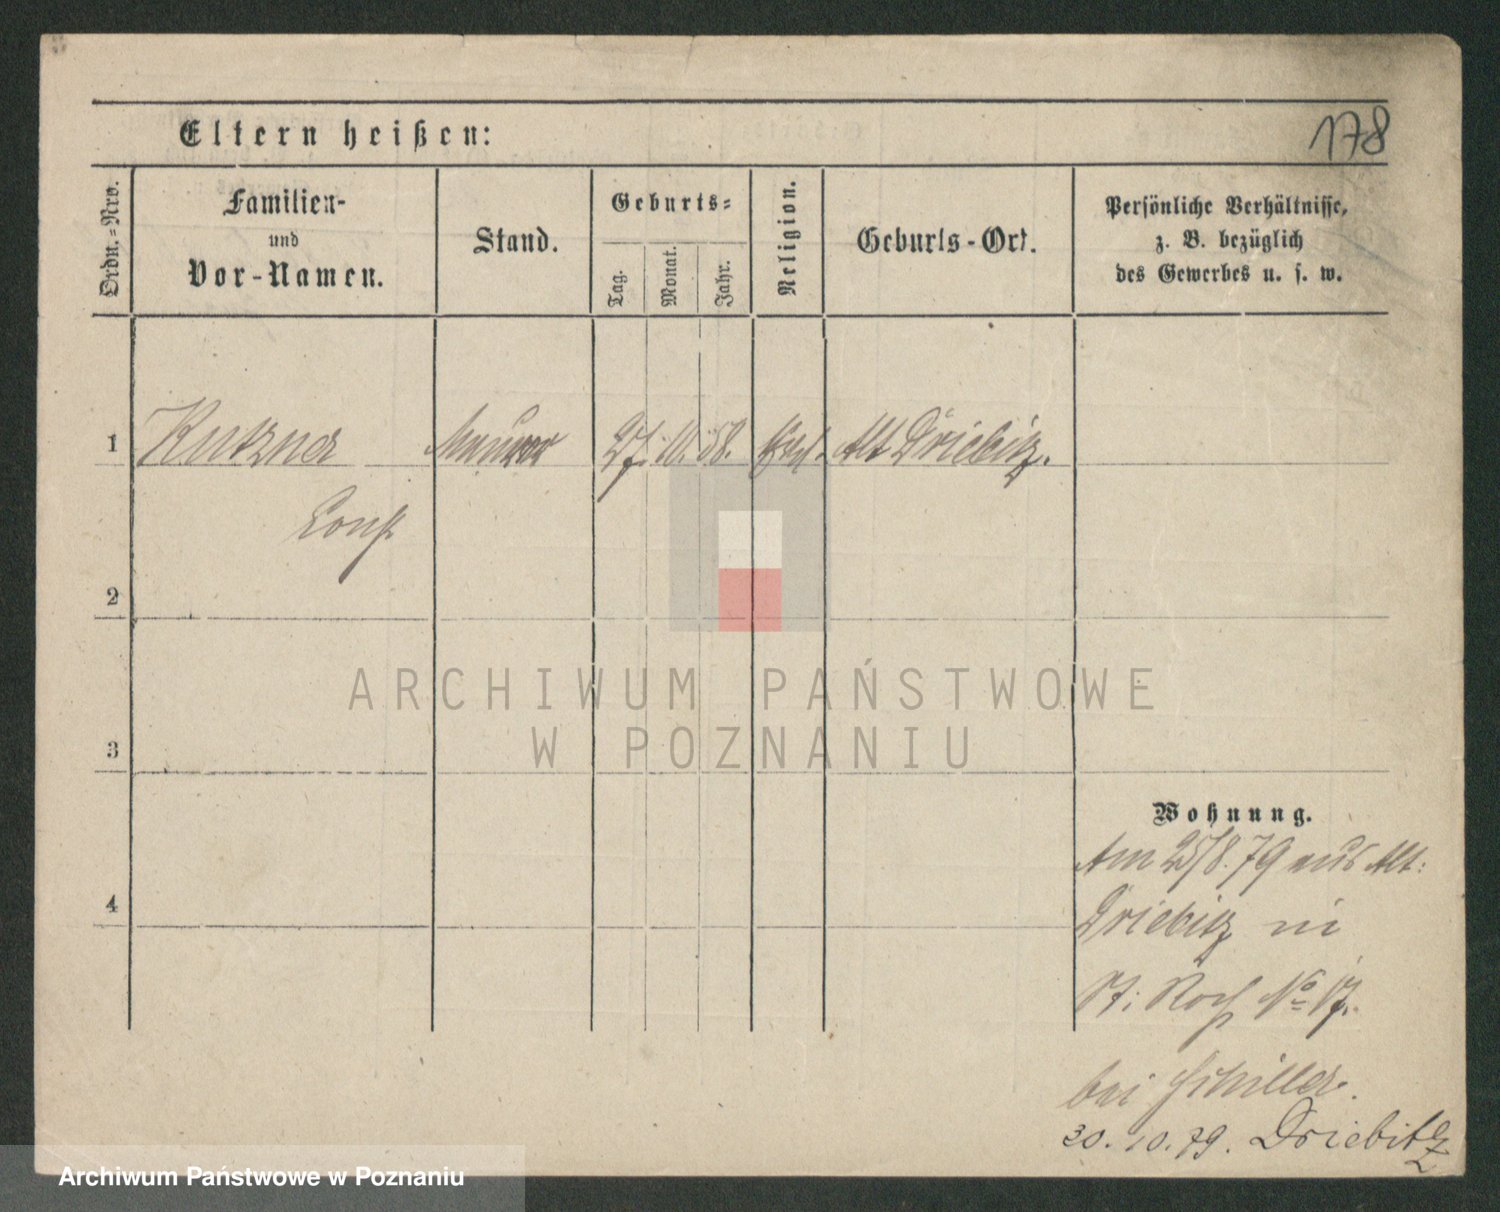 Eltern heißen:
178
Ordn.=Nro.
Familien-
und
Vor-Namen.
Stand.
Geburts=
Tag.
Monat.
Jahr.
Religion.
Geburts-Ort.
Persönliche Verhältnisse,
z. B. bezüglich
des Gewerbes u. s. w.
1
Kutzner
Maurer
27. 10. 58.
Alt Driebitz.
2
3
ARCHIWUM PAŃSTWOWE
W POZNANIU
Wohnung.
Am 25/8.79 aus Alt:
4
Driebitz in
St: Roch No 17.
bei Schiller.
30.10.79. Driebitz
Archiwum Państwowe w Poznaniu